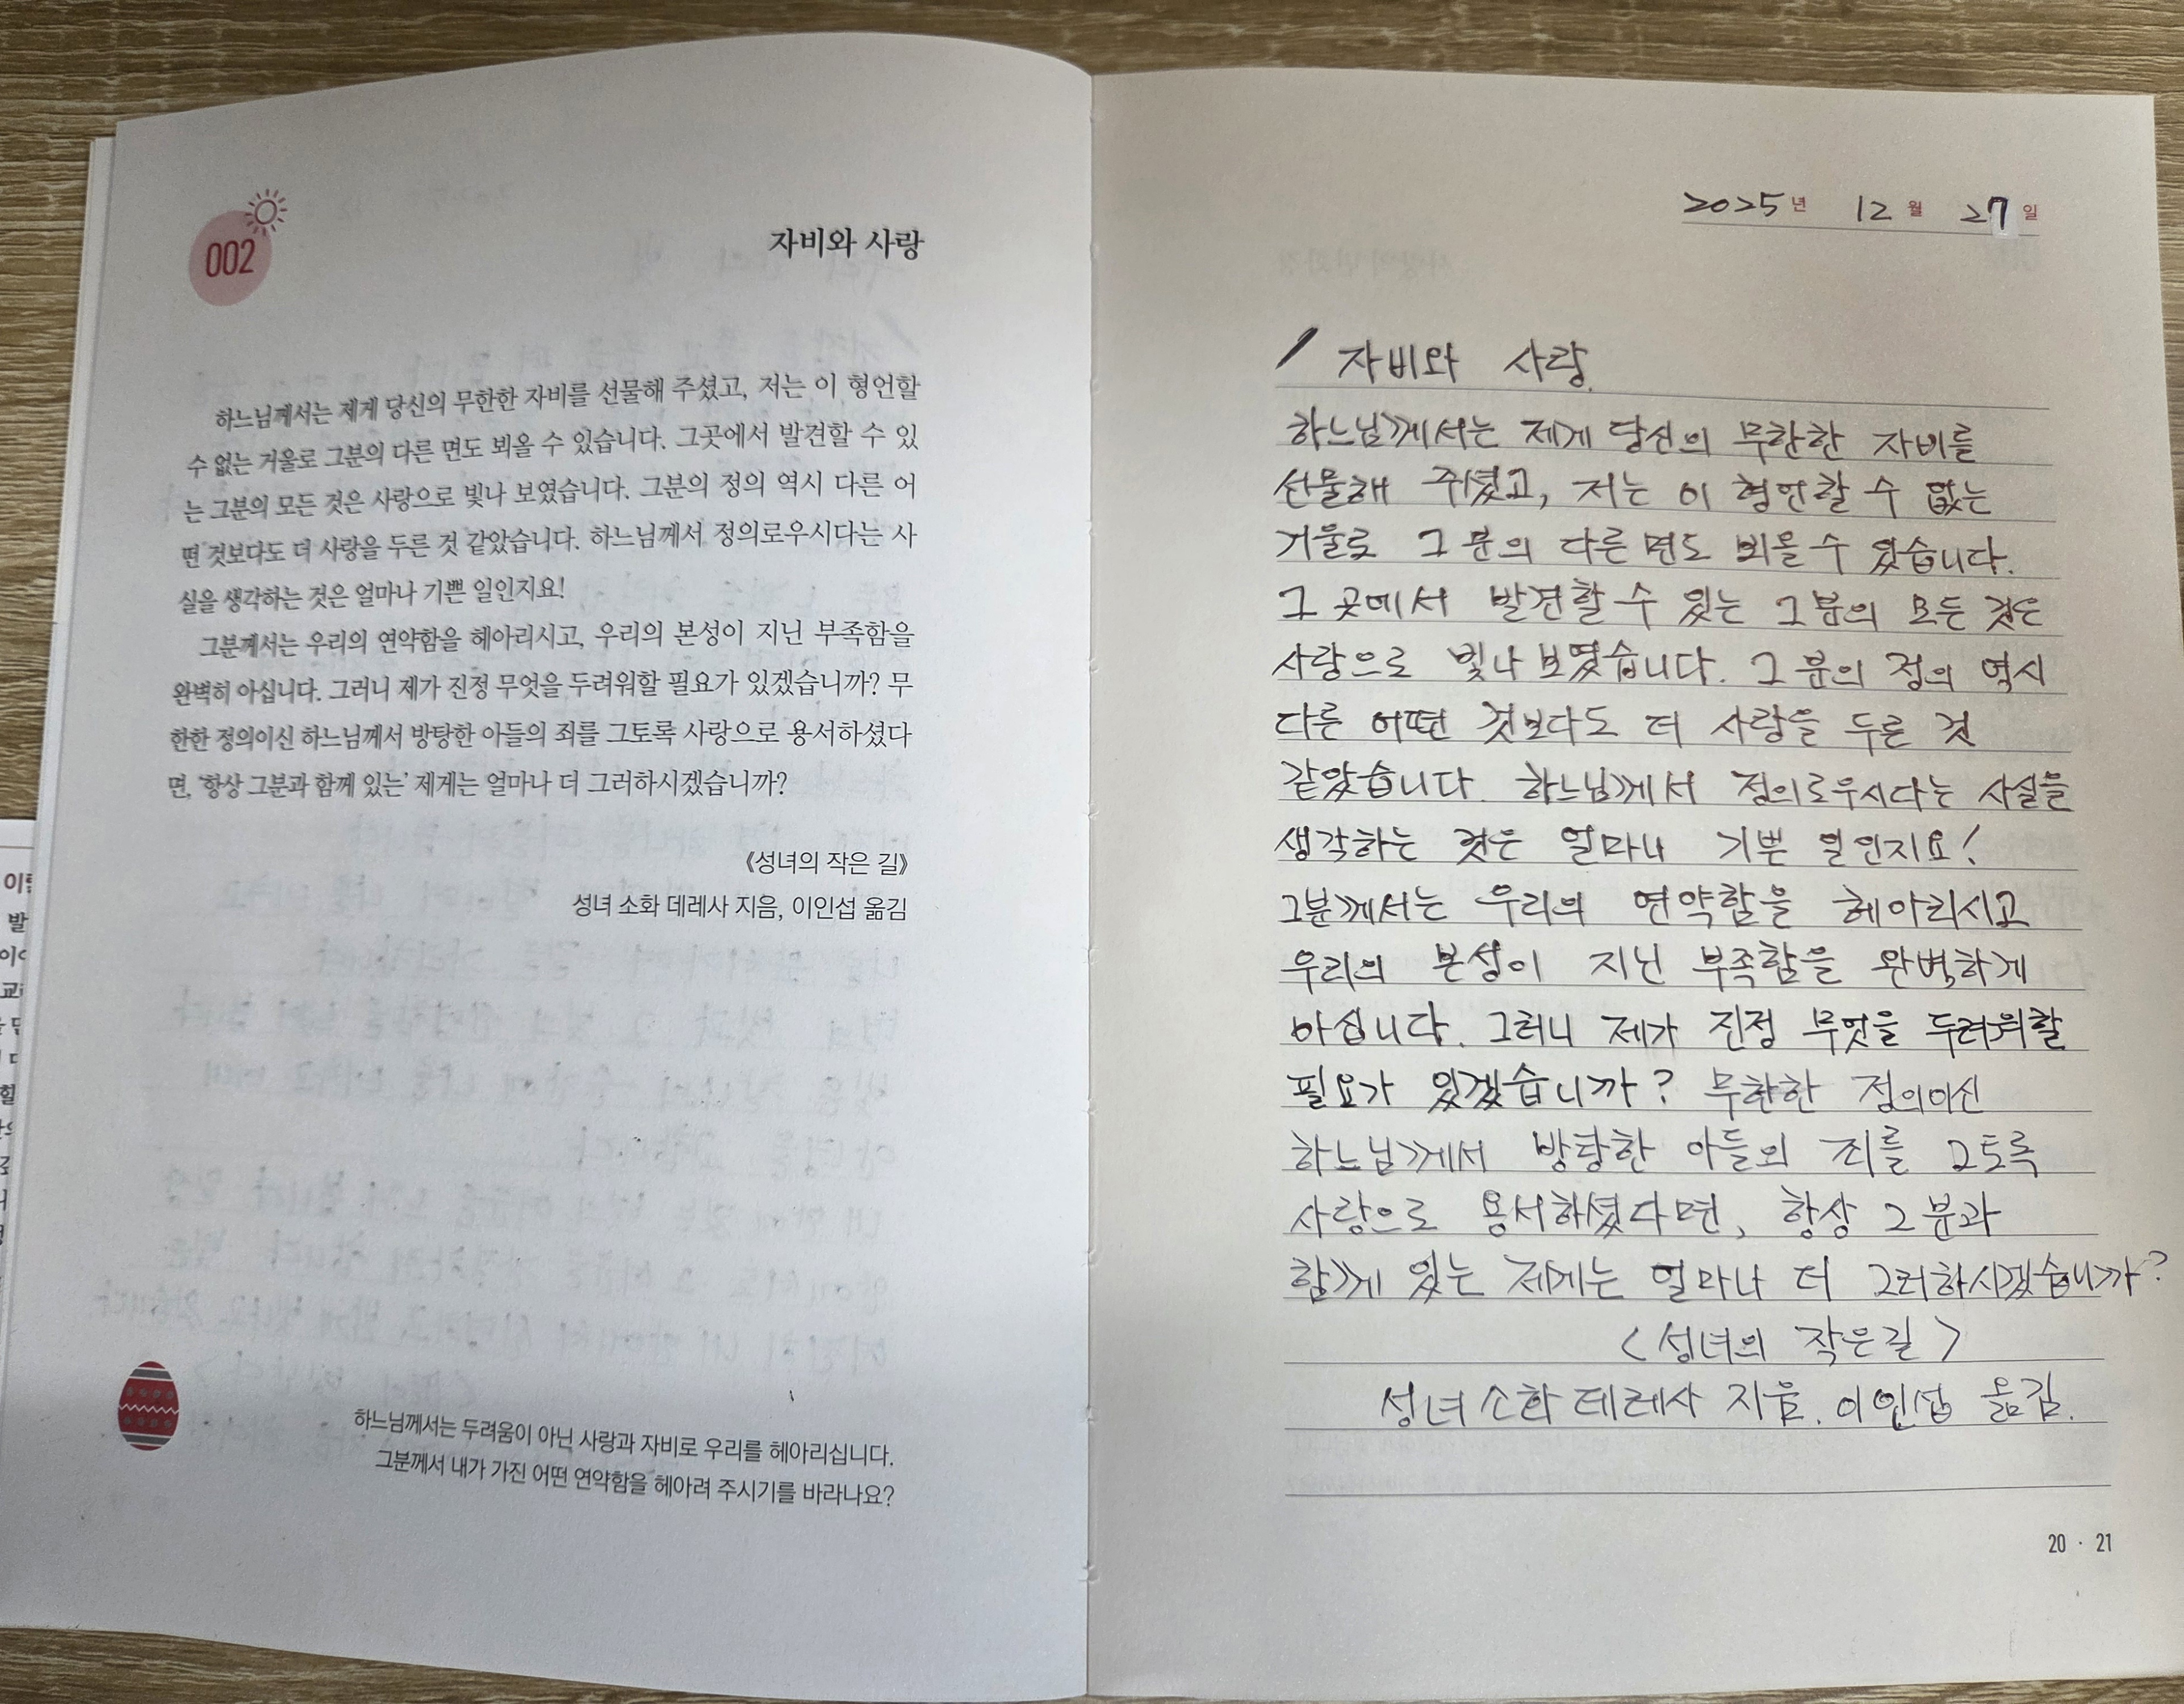 002
자비와 사랑
하느님께서는 제게 당신의 무한한 자비를 선물해 주셨고, 저는 이 형언할
수 없는 거울로 그분의 다른 면도 뵈올 수 있습니다. 그곳에서 발견할 수 있
는 그분의 모든 것은 사랑으로 빛나 보였습니다. 그분의 정의 역시 다른 어
떤 것보다도 더 사랑을 두른 것 같았습니다. 하느님께서 정의로우시다는 사
실을 생각하는 것은 얼마나 기쁜 일인지요!
그분께서는 우리의 연약함을 헤아리시고, 우리의 본성이 지닌 부족함을
완벽히 아십니다. 그러니 제가 진정 무엇을 두려워할 필요가 있겠습니까? 무
한한 정의이신 하느님께서 방탕한 아들의 죄를 그토록 사랑으로 용서하셨다
면, '항상 그분과 함께 있는' 제게는 얼마나 더 그러하시겠습니까?
《성녀의 작은 길》
성녀 소화 데레사 지음, 이인섭 옮김
하느님께서는 두려움이 아닌 사랑과 자비로 우리를 헤아리십니다.
그분께서 내가 가진 어떤 연약함을 헤아려 주시기를 바라나요?
2025년 12월 27일
자비와 사랑.
하느님께서는 제게 당신의 무한한 자비를
선물해 주셨고, 저는 이 형언할 수 없는
거울로 그 분의 다른 면도 뵈올 수 있습니다.
그 곳에서 발견할 수 있는 그 분의 모든 것은
사랑으로 빛나 보였습니다. 그 분의 정의 역시
다른 어떤 것보다도 더 사랑을 두른 것
같았습니다. 하느님께서 정의로우시다는 사실을
생각하는 것은 얼마나 기쁜 일인지요!
그분께서는 우리의 연약함을 헤아리시고
우리의 본성이 지닌 부족함을 완벽하게
아십니다. 그러니 제가 진정 무엇을 두려워할
필요가 있겠습니까? 무한한 정의이신
하느님께서 방탕한 아들의 죄를 그토록
사랑으로 용서하셨다면, 항상 그 분과
함께 있는 제게는 얼마나 더 그러하시겠습니까?
<성녀의 작은길>
성녀 소화 데레사 지음. 이인섭 옮김.
20 · 21